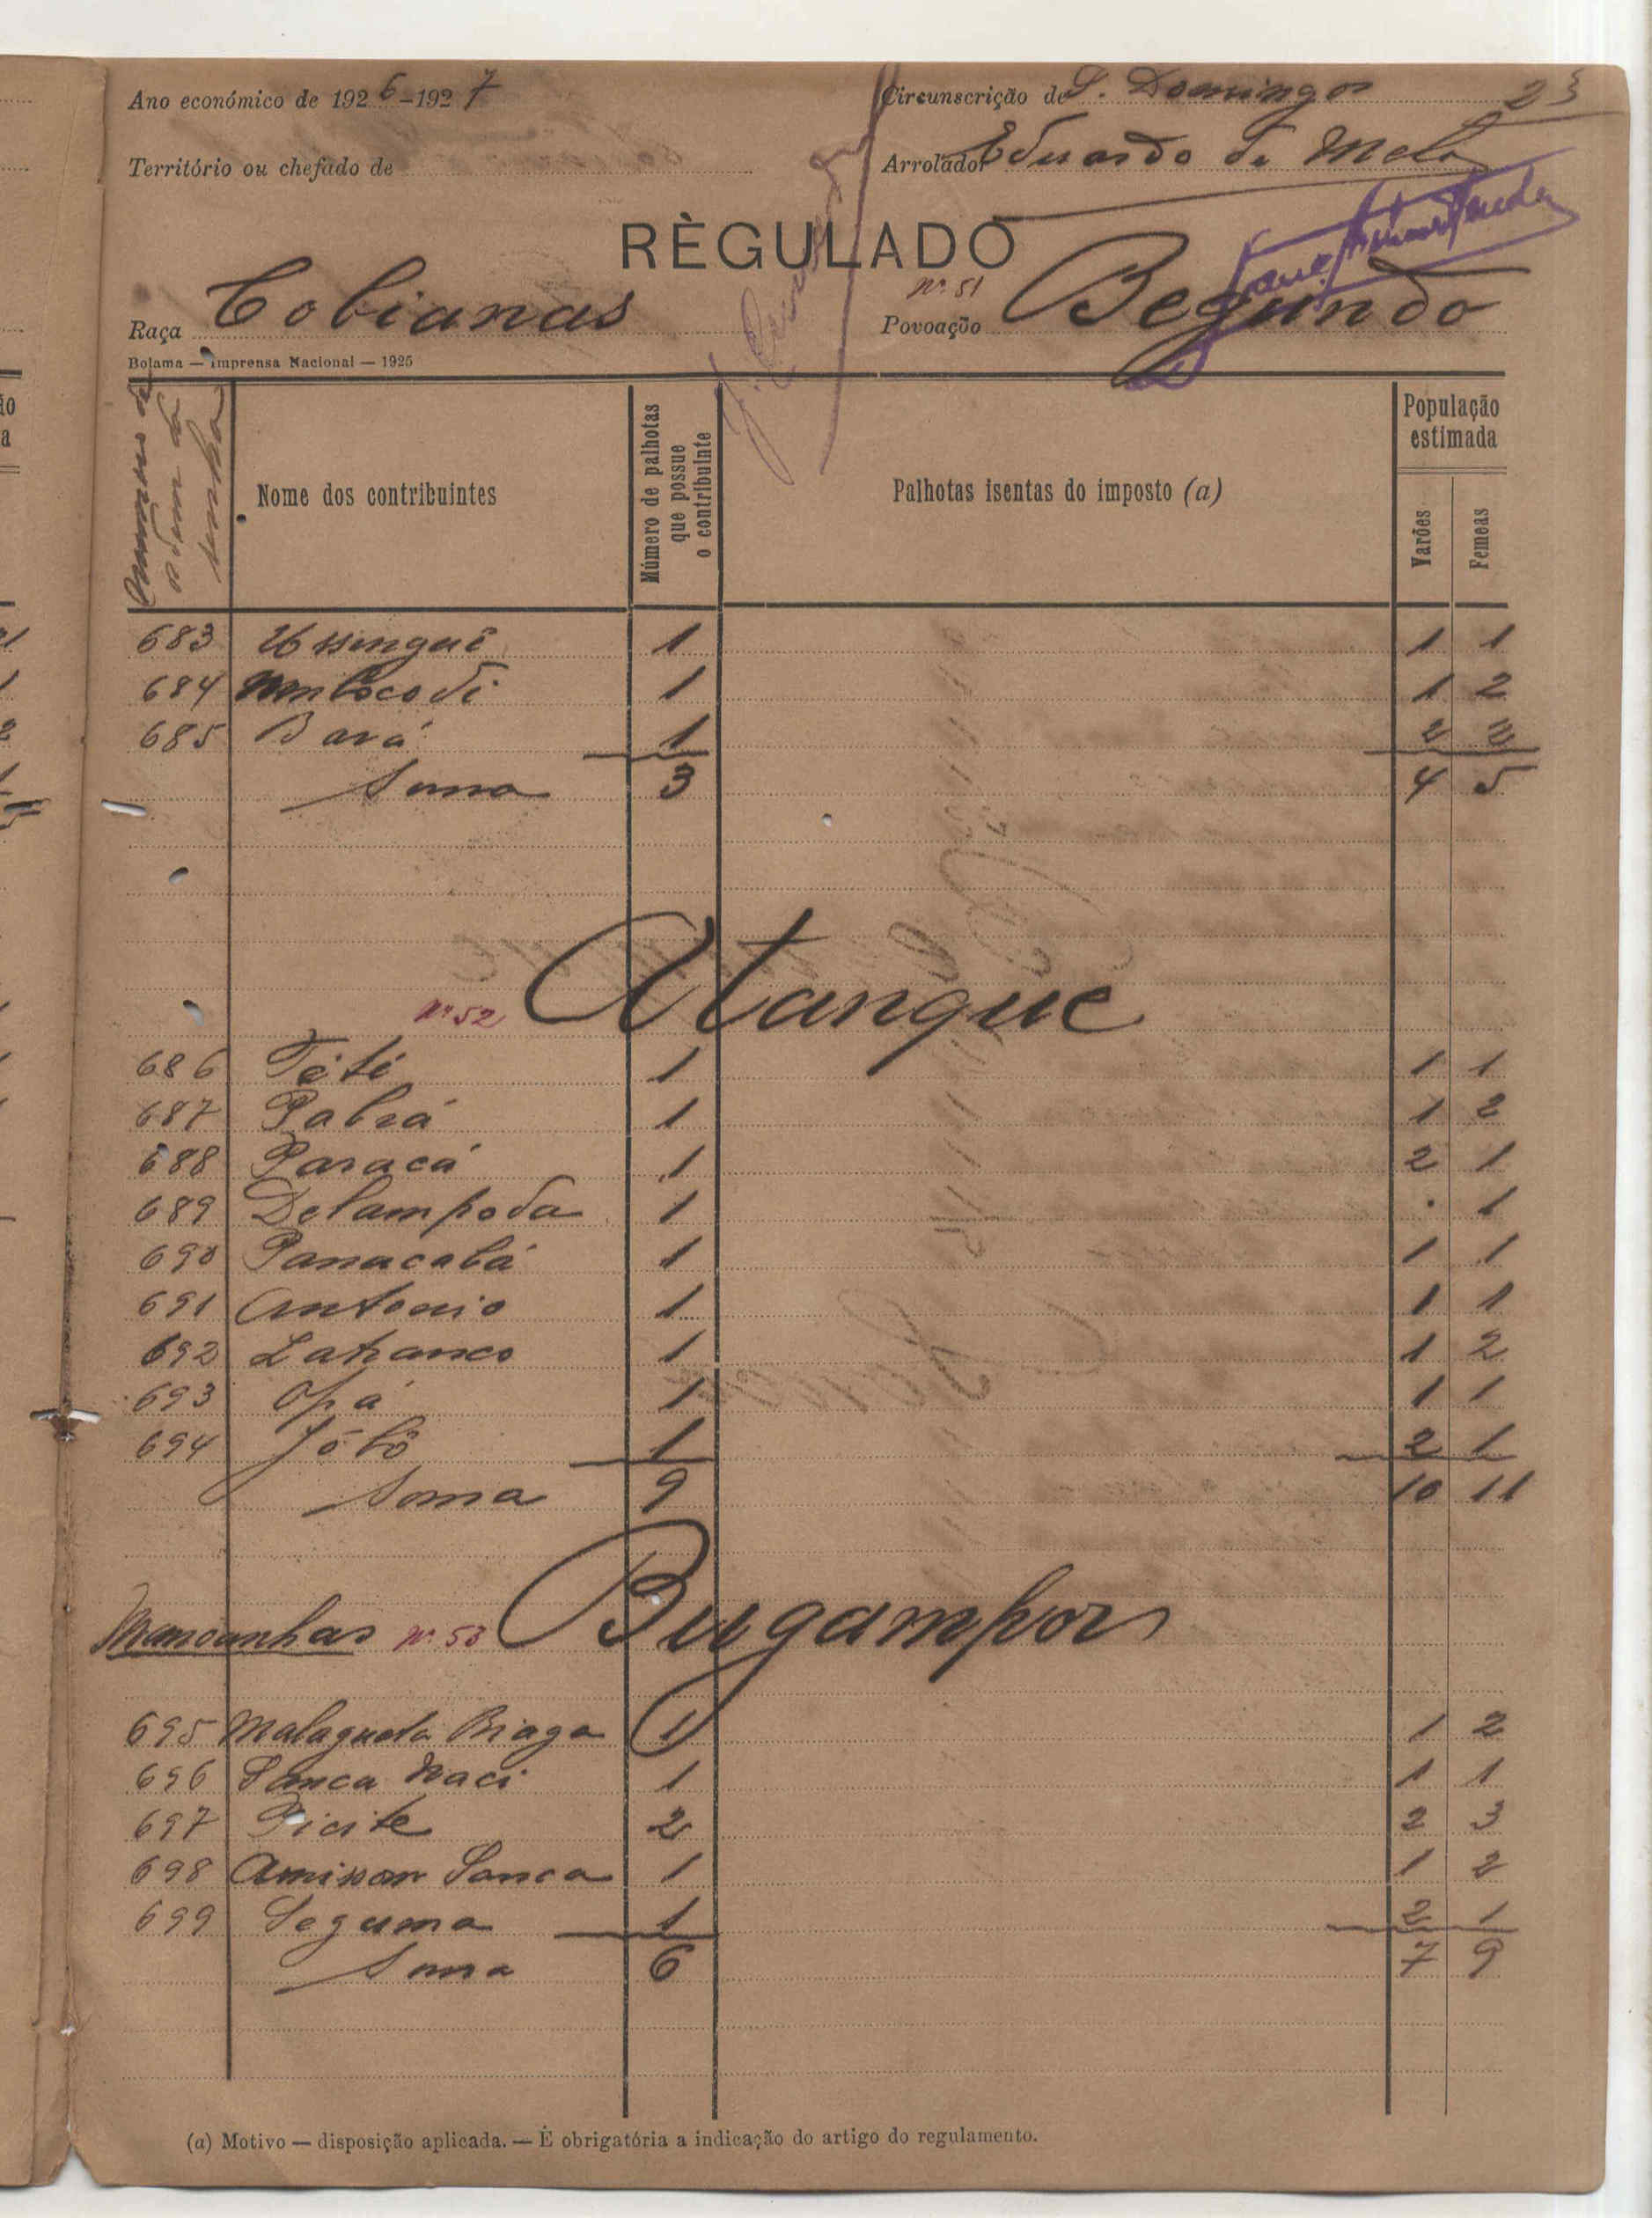 Ano económico de 1926-1927
Circunscrição de S. Domingos 23
Território ou chefado de
Arrolador Eduardo de Melo
RÈGULADO
Raça Cobianas
Nº 51
Povoação Begundo
Bolama — Imprensa Nacional — 1925
Nome dos contribuintes
Número de palhotas que possue o contribuinte
Palhotas isentas do imposto (a)
População estimada
Varões
Femeas
683 Ussinguê 1 1 1
684 1 1 2
685 Bará 1 2 2
Soma 3 4 5
Nº 52 Atangue
686 Téte 1 1 1
687 Pabrá 1 1 2
688 Paracá 1 2 1
689 Delampoda 1 . 1
690 Panacabá 1 1 1
691 Antonio 1 1 1
692 Latranco 1 1 2
693 Opá 1 1 1
694 Jóbô 1 2 1
Soma 9 10 11
Mancanhas Nº 53 Bugampor
695 Malagueta Biaga 1 1 2
696 Sanca Naci 1 1 1
697 Picite 2 2 3
698 Sanca 1 1 2
699 Seguma 1 2 1
Soma 6 7 9
(a) Motivo — disposição aplicada. — É obrigatória a indicação do artigo do regulamento.